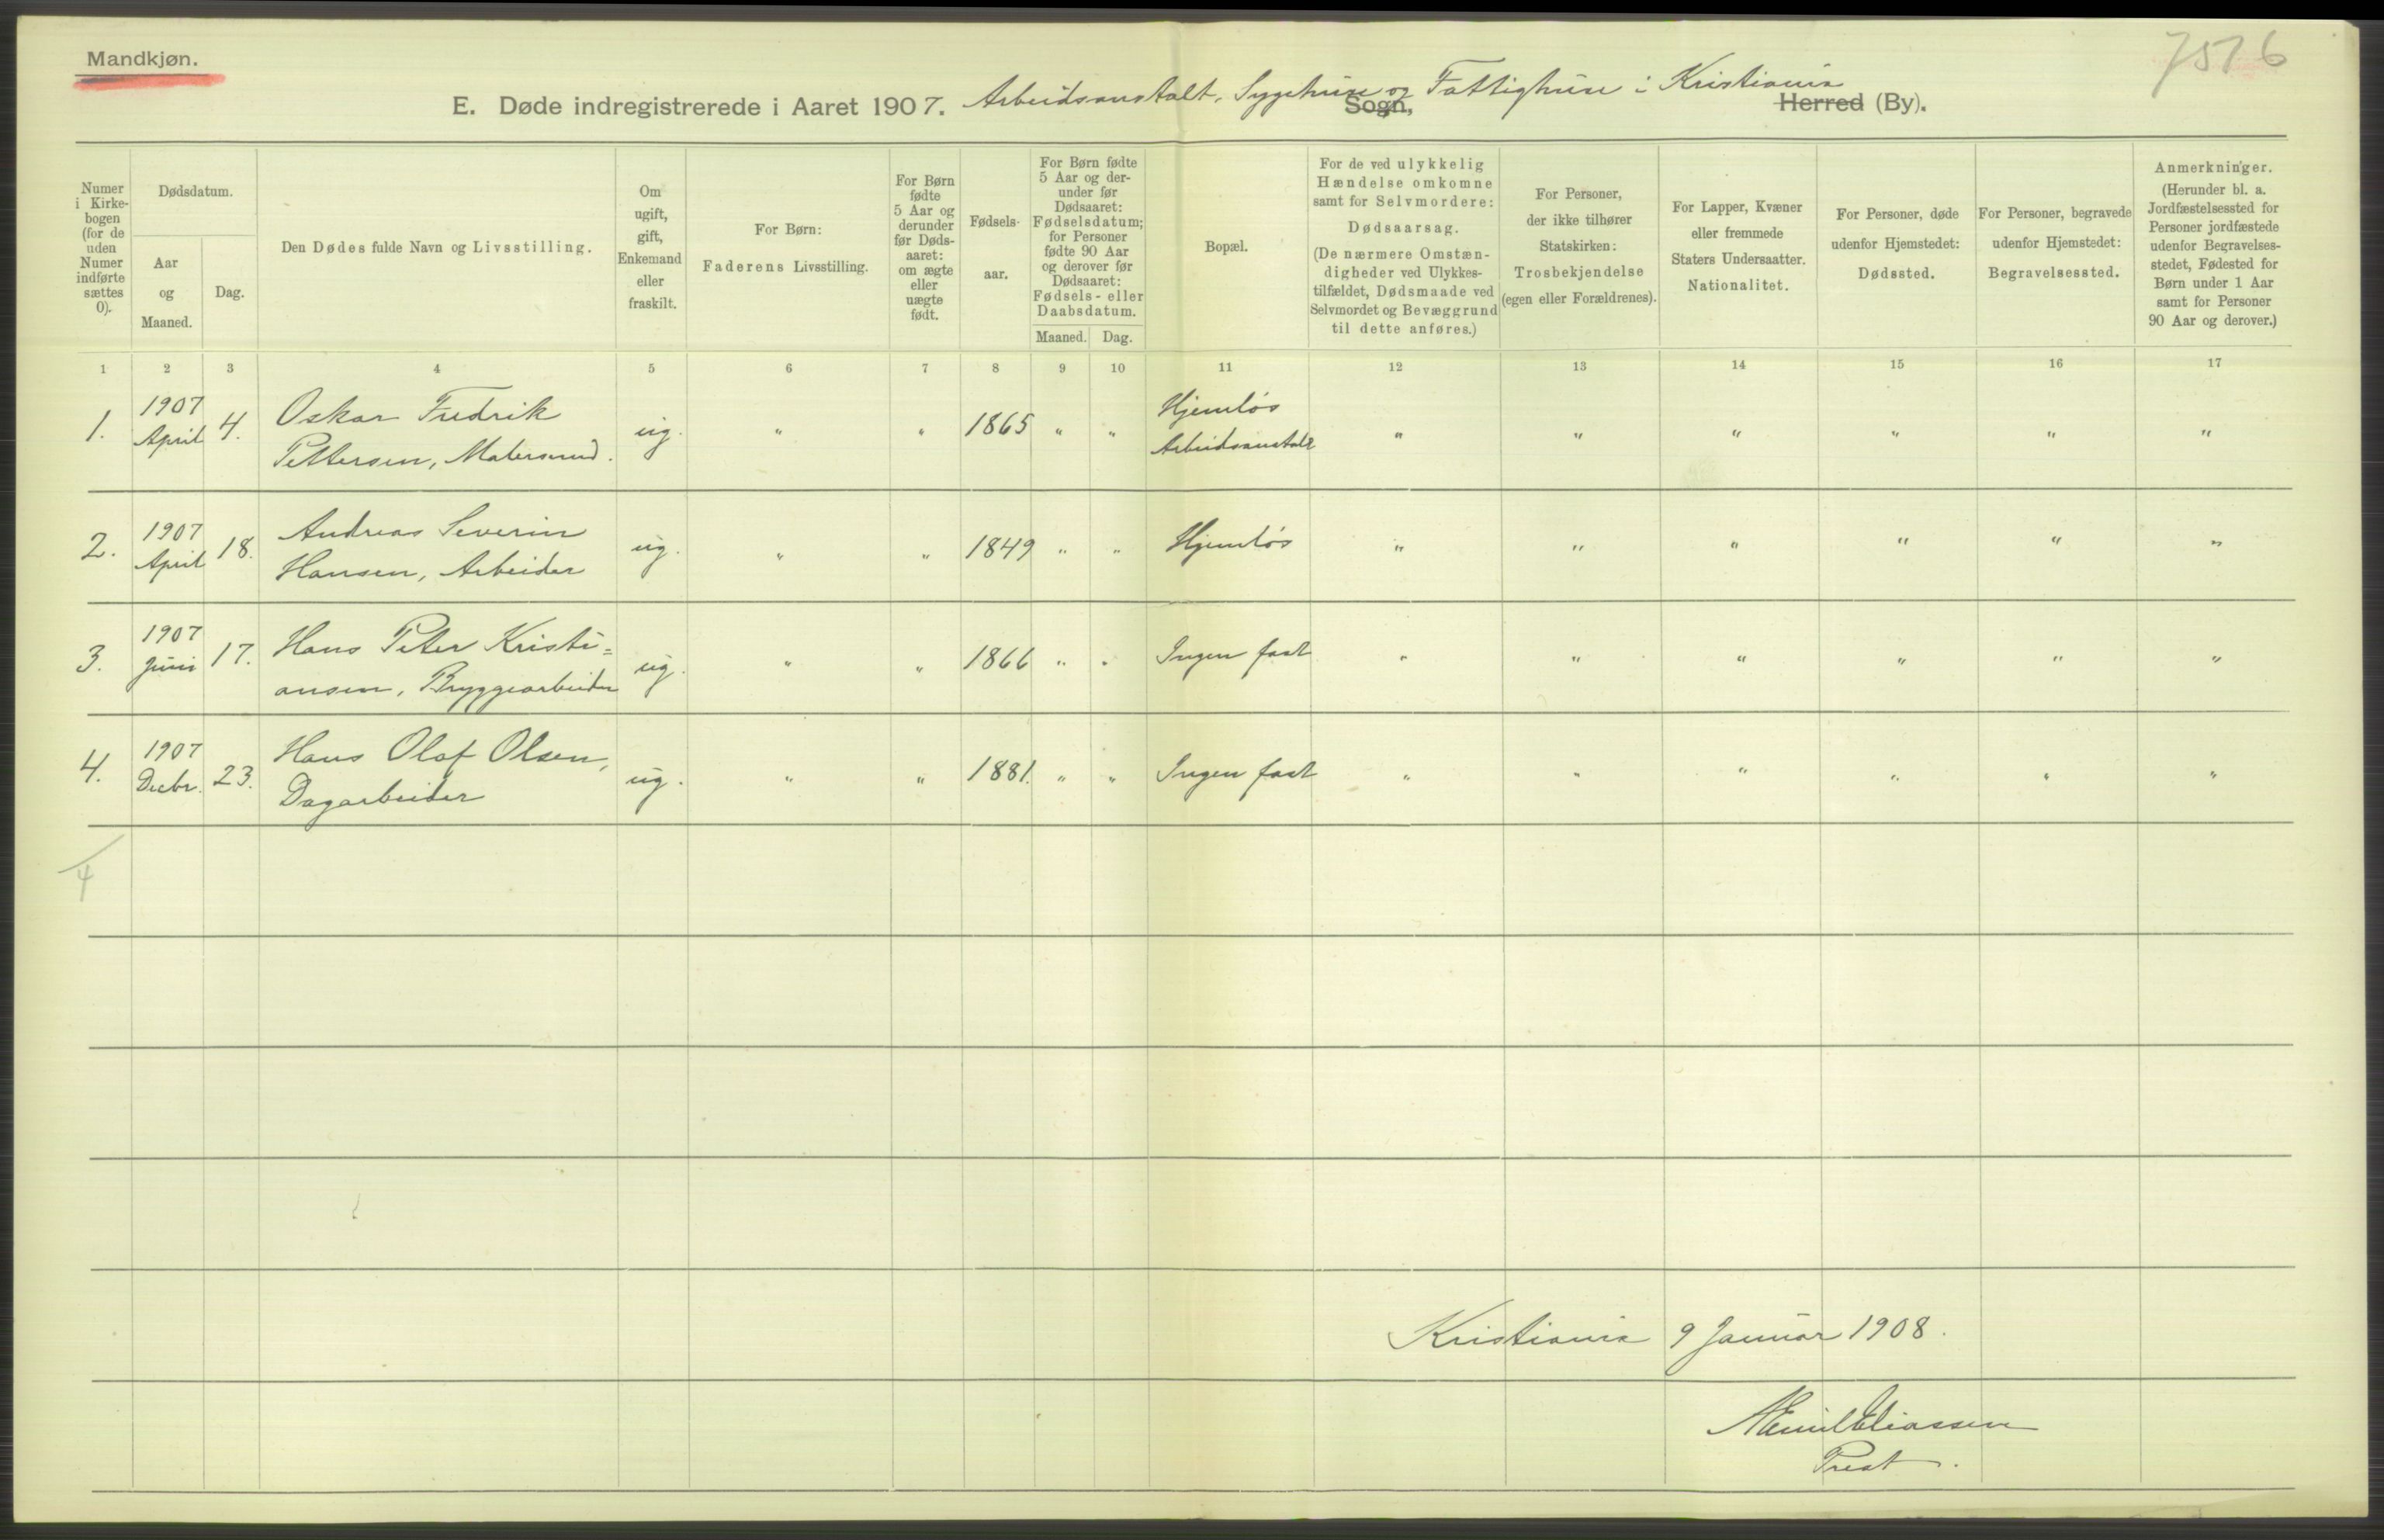 Mandkjøn.
7516
E. Døde indregistrerede i Aaret 1907. Arbeidsanstalt, Sygehuse og Fattighuse i Kristiania
Sogn, Herred (By).
Numer
i Kirke-
bogen
(for de
uden
Numer
indførte
sættes
0).
Dødsdatum.
Aar
og
Maaned.
Dag.
Den Dødes fulde Navn og Livsstilling.
Om
ugift,
gift,
Enkemand
eller
fraskilt.
For Børn:
Faderens Livsstilling.
For Børn
fødte
5 Aar og
derunder
før Døds-
aaret:
om ægte
eller
uægte
født.
Fødsels-
aar.
For Børn fødte
5 Aar og der-
under før
Dødsaaret:
Fødselsdatum;
for Personer
fødte 90 Aar
og derover før
Dødsaaret:
Fødsels- eller
Daabsdatum.
Maaned. Dag.
Bopæl.
For de ved ulykkelig
Hændelse omkomne
samt for Selvmordere:
Dødsaarsag.
(De nærmere Omstæn-
digheder ved Ulykkes-
tilfældet, Dødsmaade ved
Selvmordet og Bevæggrund
til dette anføres.)
For Personer,
der ikke tilhører
Statskirken:
Trosbekjendelse
(egen eller Forældrenes).
For Lapper, Kvæner
eller fremmede
Staters Undersaatter.
Nationalitet.
For Personer, døde
udenfor Hjemstedet:
Dødssted.
For Personer, begravede
udenfor Hjemstedet:
Begravelsessted.
Anmerkninger.
(Herunder bl. a.
Jordfæstelsessted for
Personer jordfæstede
udenfor Begravelses-
stedet, Fødested for
Børn under 1 Aar
samt for Personer
90 Aar og derover.)
1 2 3 4 5 6 7 8 9 10 11 12 13 14 15 16 17
1. 1907 April 4. Oskar Fredrik
Pettersen, Malersvend. ug. " " 1865 " " Hjemløs
Arbeidsanstalt " " " " " "
2. 1907 April 18. Andreas Severin
Hansen, Arbeider ug. " " 1849 " " Hjemløs " " " " " "
3. 1907 Juni 17. Hans Peter Kristi=
ansen, Bryggearbeider ug. " " 1866 " " Ingen fast " " " " " "
4. 1907 Decbr. 23. Hans Olaf Olsen,
Dagarbeider ug. " " 1881. " " Ingen fast " " " " " "
4
Kristiania 9 Januar 1908.
Eliassen
Prest.